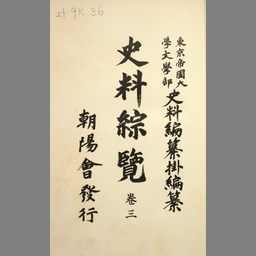 東京帝國大
學文學部
史料編纂掛編纂
史料綜覽
卷三
朝陽會發行
9K 36